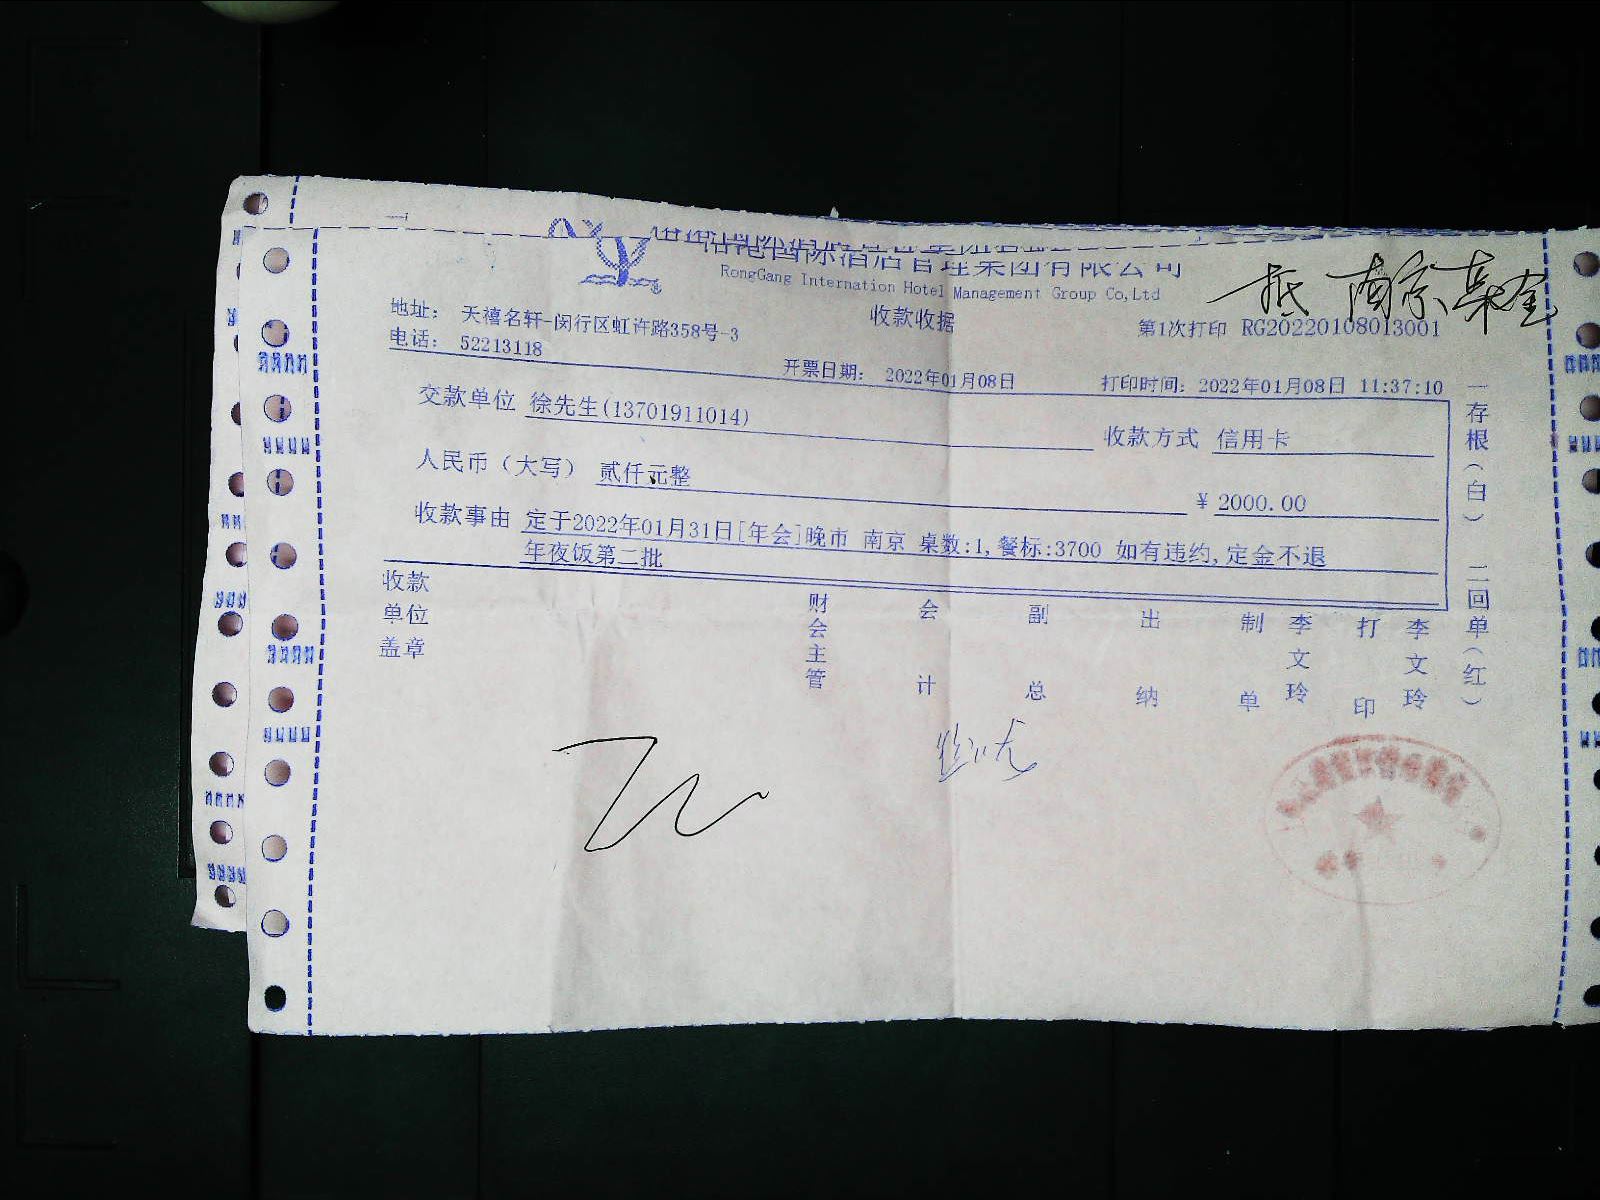 国际酒店管理集团有限公司
RongGang Internation Hotel Management Group Co,Ltd
抵 南京
地址： 天禧名轩-闵行区虹许路358号-3
收款收据
第1次打印 RG20220108013001
电话： 52213118
开票日期： 2022年01月08日
打印时间：2022年01月08日 11:37:10
交款单位 徐先生(13701911014)
收款方式 信用卡
人民币（大写） 贰仟元整
¥ 2000.00
收款事由 定于2022年01月31日[年会]晚市 南京 桌数:1,餐标:3700 如有违约,定金不退
年夜饭第二批
收款单位盖章
财会主管
会计
副总
出纳
制单
李文玲
打印
李文玲
一存根（白） 二回单（红）